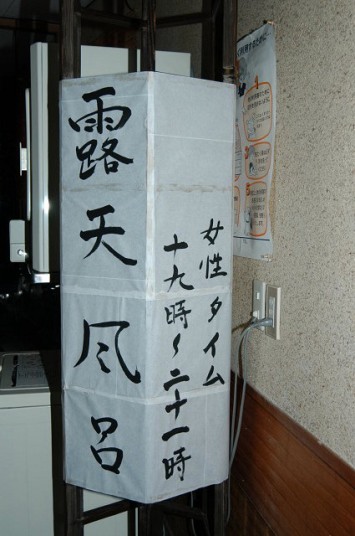 露天風呂
女性タイム
十九時～二十一時